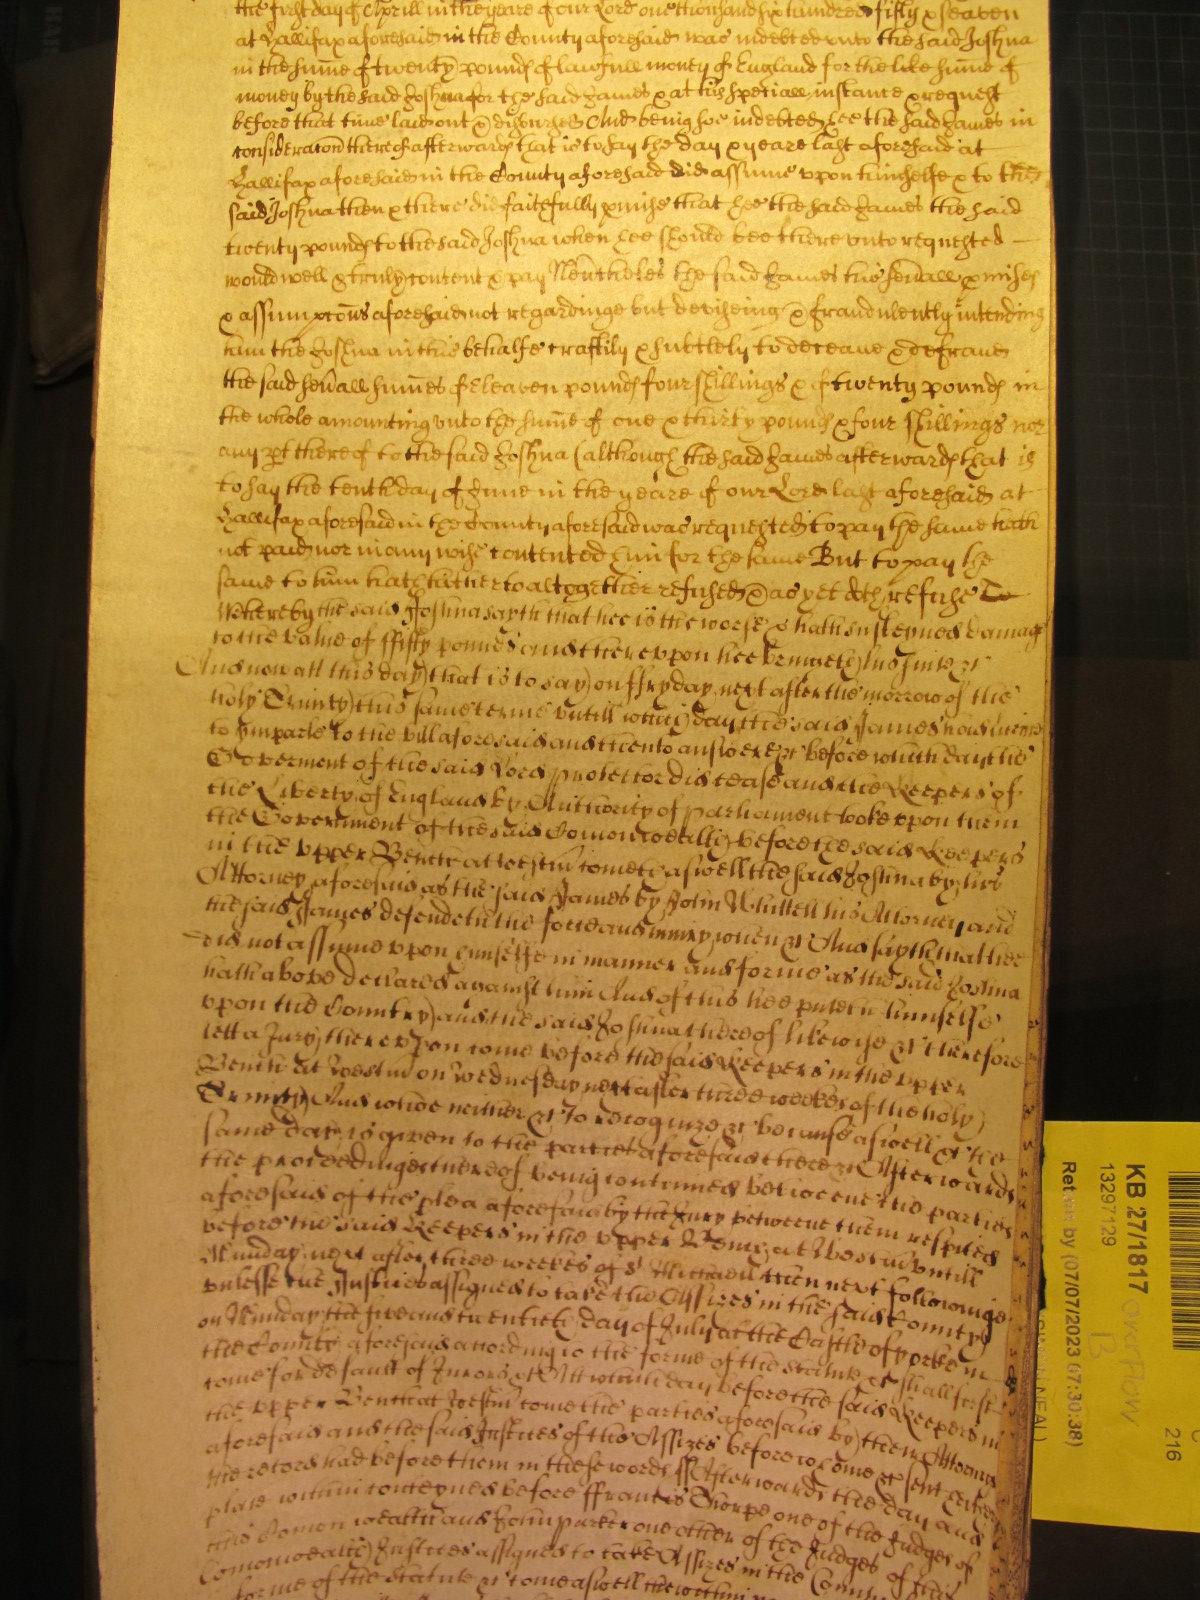 the first day of Aprill in the yeare of our Lord one thousand six hundred fifty & seaven
at Hallifax aforesaid in the County aforesaid was indebted unto the said Joshua
in the sume of twenty pounds of lawfull money of England for the like sume of
money by the said Joshua for the said James & at his speciall instance & request
before that time laid out & disbursed And being soe indebted hee the said James in
consideracon thereof afterwards that is to say the day & yeare last aforesaid at
Hallifax aforesaid in the County aforesaid did assume upon himselfe & to the
said Joshua then & there did faithfully pmise that hee the said James the said
twenty pounds to the said Joshua when hee should bee there unto requested
would well & truly content & pay Neverthelesse the said James his sevall pmises
& assumpcons aforesaid not regardinge but deviseing & fraudulently intending
him the Joshua in this behalfe craftily & subtlely to deceave & defraud
the said sevall sumes of eleaven pounds four shillings & of twenty pounds in
the whole amounting unto the sume of one & thirty pounds & four shillings nor
any pt thereof to the said Joshua (although the said James afterwards that is
to say the tenth day of June in the yeare of our Lord last aforesaid at
Hallifax aforesaid in the County aforesaid was requested to pay the same hath
not paid nor in any wise contented him for the same But to pay the
same to him hath hitherto altogether refused & as yet doth refuse
Whereby the said Joshua sayth that hee is the worse & hath susteyned damage
to the value of ffifty pounds and thereupon hee bringeth his suite &c
And now att this day (that is to say) on ffryday next after the morrow of the
holy Trinity this same terme untill which day the said James had licence
to imparle to the bill aforesaid and then to answere &c before which day the
Goverment of the said Lord protector did cease and the Keepers of
the Liberty of England by Authority of parliament tooke upon them
the Goverment of the said Comonwealth before the said Keepers
in the upper Bench at Westm come aswell the said Joshua by his
Attorney aforesaid as the said James by John Whittell his Attorney and
the said James defendeth the force and iniury when &c And sayth that hee
did not assume upon himselfe in manner and forme as the said Joshua
hath above declared against him And of this hee putteth himselfe
upon the Country and the said Joshua thereof likewise &c therefore
lett a Jury thereupon come before the said Keepers in the upper
Bench at Westm on Wednesday next after three weekes of the holy
Trinity And whoe neither &c To recognize &c because aswell &c the
same day is given to the parties aforesaid there &c Afterwards
the proceedinges thereof being continued betweene the parties
aforesaid of the plea aforesaid by the Jury betweene them respited
before the said Keepers in the upper Bench at Westm untill
Munday next after three weekes of St Michaell then next followinge
unlesse the Justices assigned to take the Assizes in the said County
on Munday the five and twentieth day of July at the Castle of Yorke in
the County aforesaid according to the forme of the statute &c shall first
come for default of Jurors &c Att which day before the said Keepers in
the upper Bench at Westm come the parties aforesaid by their Attorneys
aforesaid and the said Justices of the Assizes before whome &c sent
the record had before them in these words ss Afterwards the day and
place within conteyned before ffrancis Thorpe one of the Judges of
this Comonwealth and John parker one other of the Judges of this
Comonwealth Justices assigned to take Assizes in the County
forme of the statute &c come aswell the within
KB 27/1817 overflow
B
13297129
Return by (07/07/2023 07:30:38)
216